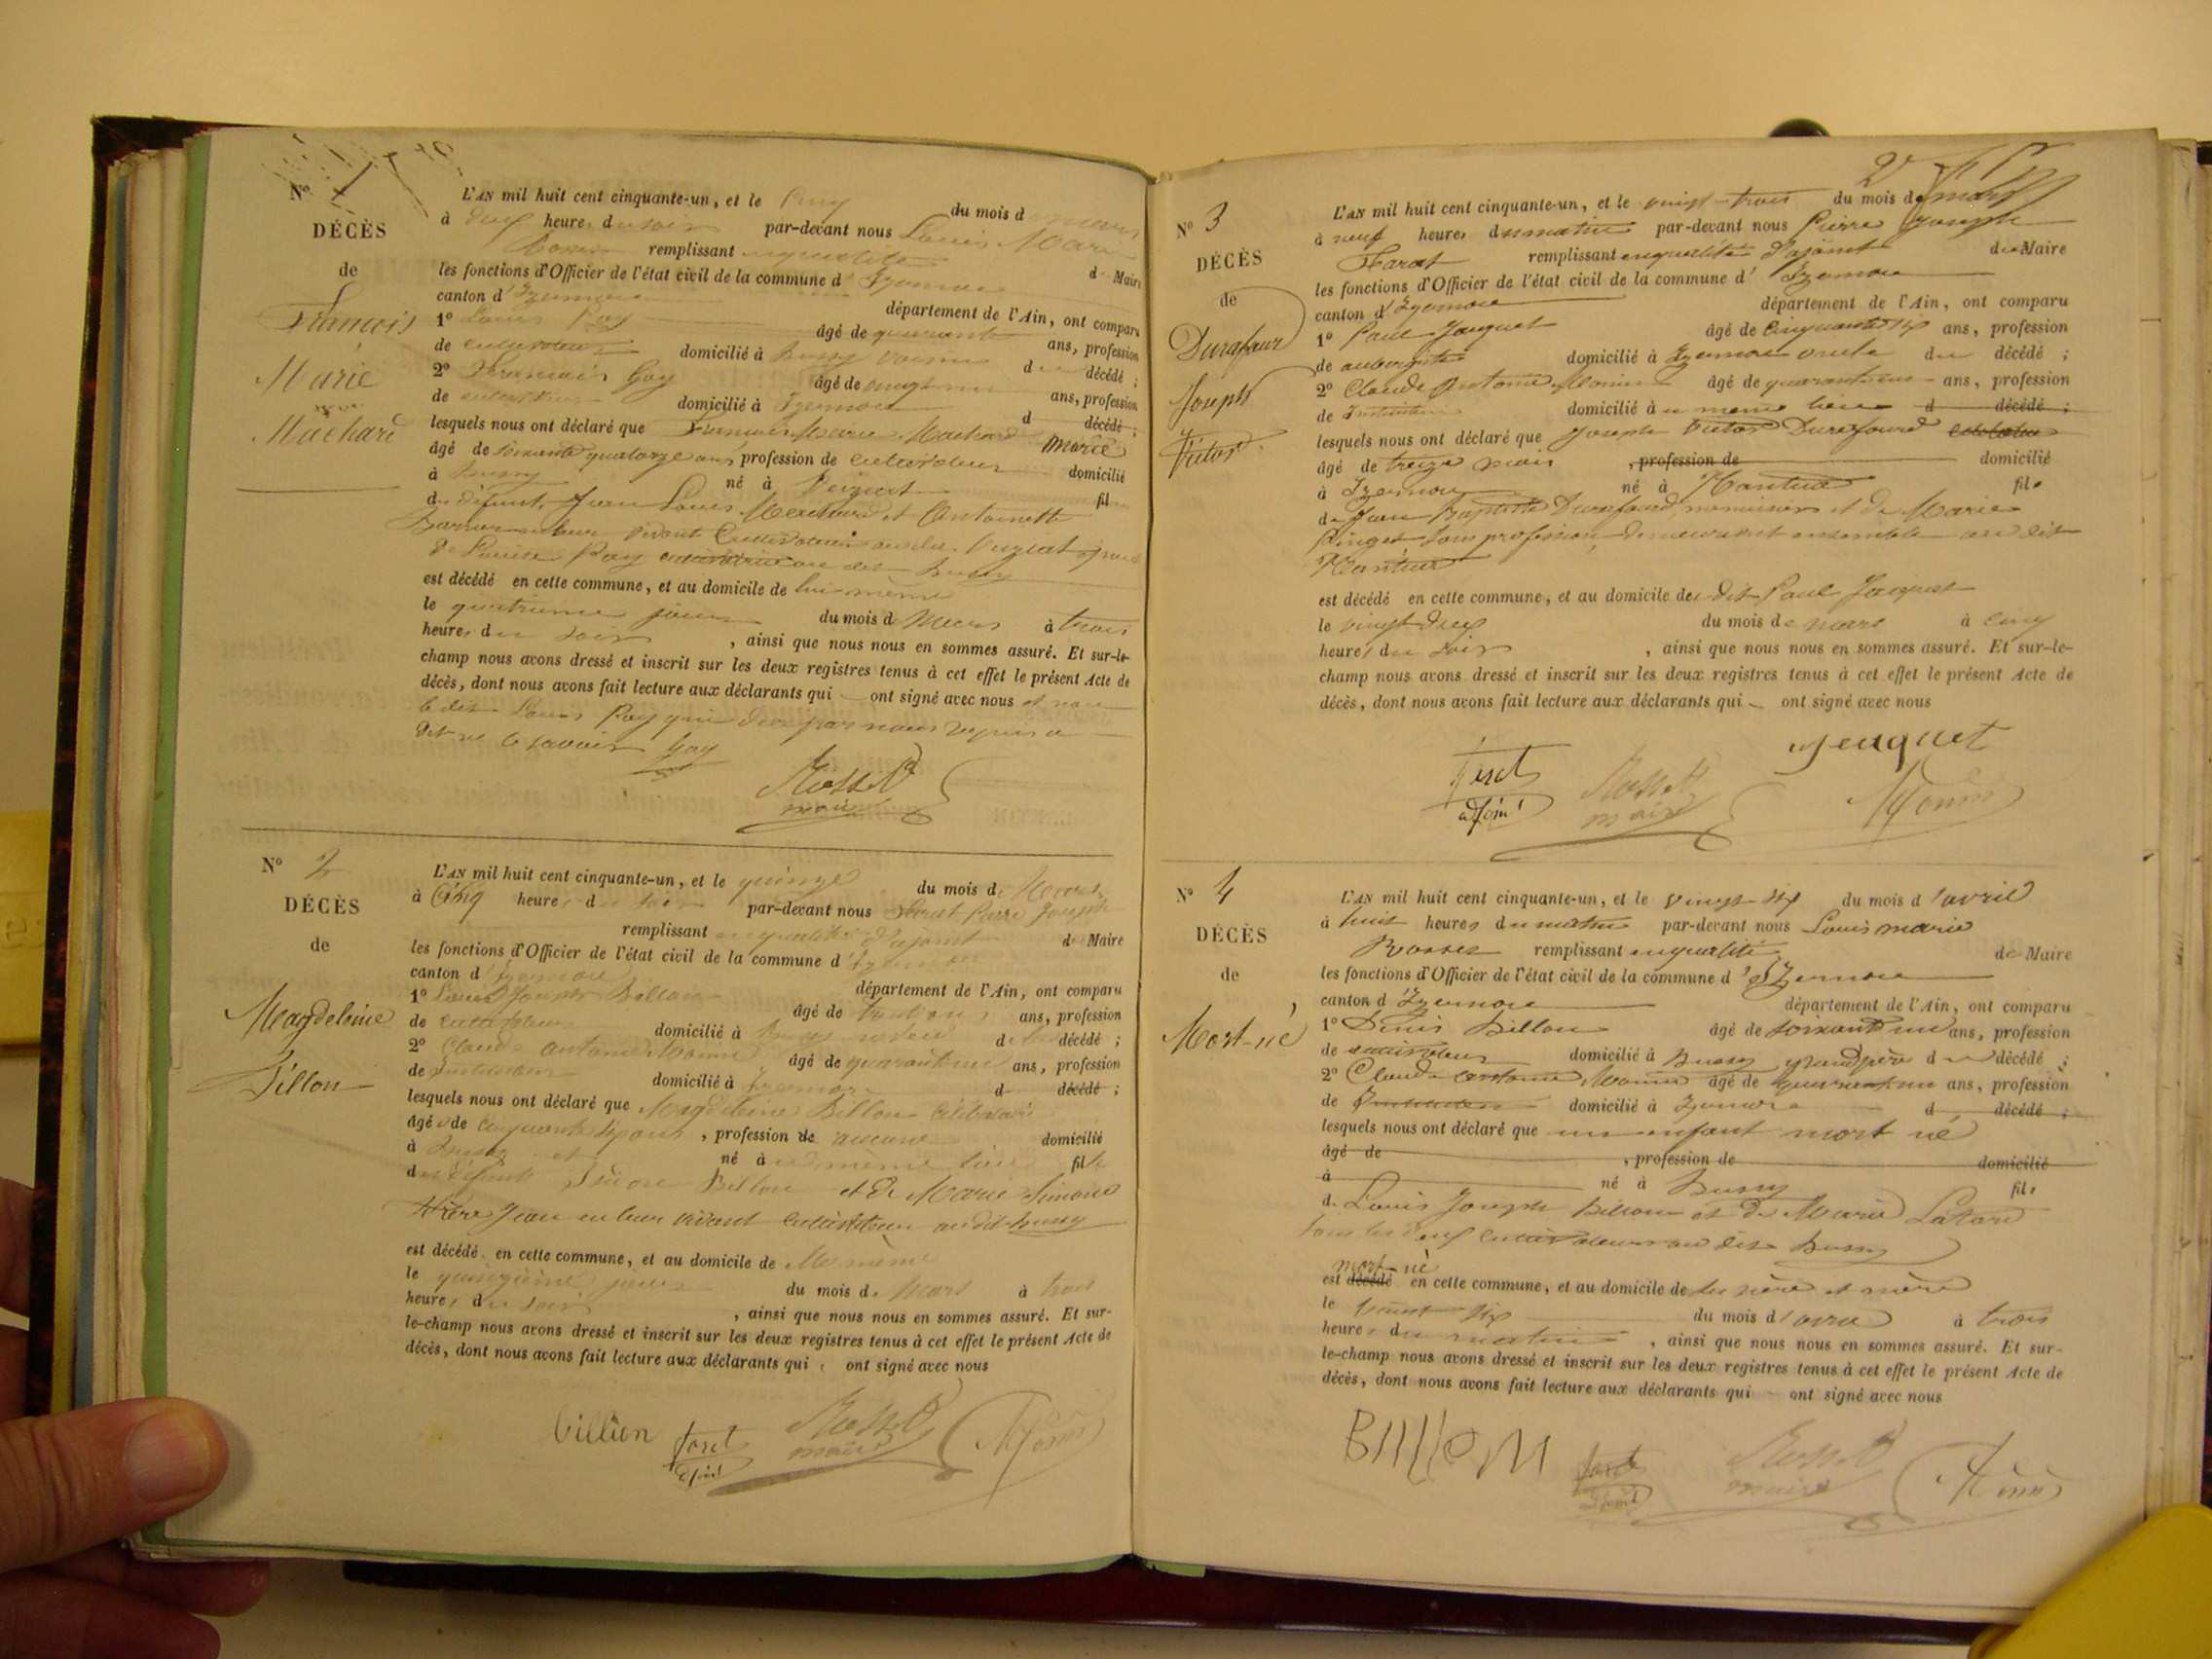 N° 1
DÉCÈS
de
François
Marie
Machard
L'AN mil huit cent cinquante-un, et le cinq du mois de mars
à deux heures du soir par-devant nous Louis Marie
Rosset remplissant en qualité de Maire
les fonctions d'Officier de l'état civil de la commune d'Izernore
canton d'Izernore département de l'Ain, ont comparu
1° Louis Roy âgé de quarante ans, profession
de cultivateur domicilié à Bussy voisin du décédé ;
2° François Goy âgé de vingt ans, profession
de cultivateur domicilié à Izernore d décédé ;
lesquels nous ont déclaré que François Marie Machard marié
âgé de soixante quatorze ans, profession de cultivateur domicilié
à Bussy né à Veyziat fil
de défunts Jean Louis Machard et Antoinette
en leur vivant cultivateurs audit Veyziat
de Louise Roy audit Bussy
est décédé en cette commune, et au domicile de lui-même
le quatrième jour du mois de Mars à trois
heures du soir, ainsi que nous nous en sommes assuré. Et sur-le-
champ nous avons dressé et inscrit sur les deux registres tenus à cet effet le présent Acte de
décès, dont nous avons fait lecture aux déclarants qui ont signé avec nous et non
le dit Louis Roy qui de par nous requis a
dit ne le savoir Goy
Rosset
maire
N° 2
DÉCÈS
de
Magdeleine
Billon
L'AN mil huit cent cinquante-un, et le quinze du mois de Mars
à cinq heures du soir par-devant nous Ferat Pierre Joseph
remplissant en qualité d'ajoint de Maire
les fonctions d'Officier de l'état civil de la commune d'Izernore
canton d'Izernore département de l'Ain, ont comparu
1° Louis Joseph Billon âgé de ans, profession
de cultivateur domicilié à Bussy neveu de la décédé ;
2° Claude Antoine Monin âgé de quarante un ans, profession
de Instituteur domicilié à Izernore d décédé ;
lesquels nous ont déclaré que Magdeleine Billon célibataire
âgée de cinquante six ans, profession de aucune domicilié
à Bussy et né à au même lieu fille
des défunts Billon et de Marie Simone
Jean en leur vivant cultivateurs au dit Bussy
est décédé en cette commune, et au domicile de elle même
le quinzième jour du mois de Mars à trois
heures du soir, ainsi que nous nous en sommes assuré. Et sur-
le-champ nous avons dressé et inscrit sur les deux registres tenus à cet effet le présent Acte de
décès, dont nous avons fait lecture aux déclarants qui ont signé avec nous
billion feret
adjoint
Rosset
maire
Monin
2
N° 3
DÉCÈS
de
Durafour
Joseph
Victor
L'AN mil huit cent cinquante-un, et le vingt-trois du mois de mars
à neuf heures du matin par-devant nous Pierre Joseph
Farat remplissant en qualité d'ajoint de Maire
les fonctions d'Officier de l'état civil de la commune d'Izernore
canton d'Izernore département de l'Ain, ont comparu
1° Paul Jaquet âgé de cinquante six ans, profession
de aubergiste domicilié à Izernore oncle du décédé ;
2° Claude Antoine Monin âgé de quarante un ans, profession
de Instituteur domicilié à u meme lieu d décédé ;
lesquels nous ont déclaré que Joseph Victor Durafourd
âgé de treize mois, profession de domicilié
à Izernore né à Nantua fils
de Jean Baptiste Durafourd, menuisier et de Marie
Pinget sans profession, demeurant ensemble au dit
Nantua
est décédé en cette commune, et au domicile du dit Paul Jaquet
le vingt deux du mois de mars à cinq
heures du soir, ainsi que nous nous en sommes assuré. Et sur-le-
champ nous avons dressé et inscrit sur les deux registres tenus à cet effet le présent Acte de
décès, dont nous avons fait lecture aux déclarants qui ont signé avec nous
Jeuquet
feret
adjoint
Rosset
maire
Monin
N° 4
DÉCÈS
de
Mort-né
L'AN mil huit cent cinquante-un, et le vingt-six du mois d'avril
à huit heures du matin par-devant nous Louis marie
Rosset remplissant en qualité de Maire
les fonctions d'Officier de l'état civil de la commune d'Izernore
canton d'Izernore département de l'Ain, ont comparu
1° Denis Billon âgé de soixante un ans, profession
de cultivateur domicilié à Bussy grand père du décédé ;
2° Claude Antoine Monin âgé de quarante un ans, profession
de Instituteur domicilié à Izernore d décédé ;
lesquels nous ont déclaré que un enfant mort né
âgé de, profession de domicilié
à né à Bussy fils
de Louis Joseph Billon et de Marie
tous les deux cultivateurs au dit Bussy
mort-né
est décédé en cette commune, et au domicile de les père et mère
le vingt six du mois d'avril à trois
heures du matin, ainsi que nous nous en sommes assuré. Et sur-
le-champ nous avons dressé et inscrit sur les deux registres tenus à cet effet le présent Acte de
décès, dont nous avons fait lecture aux déclarants qui ont signé avec nous
BIllON
feret
adjoint
Rosset
maire
Monin